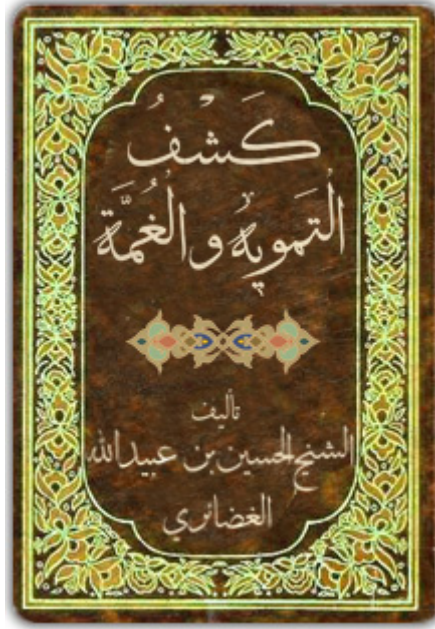 كَشفُ
التمويه والغُمَّة
تأليف
الشيخ الحسين بن عبيدالله
الغضائري